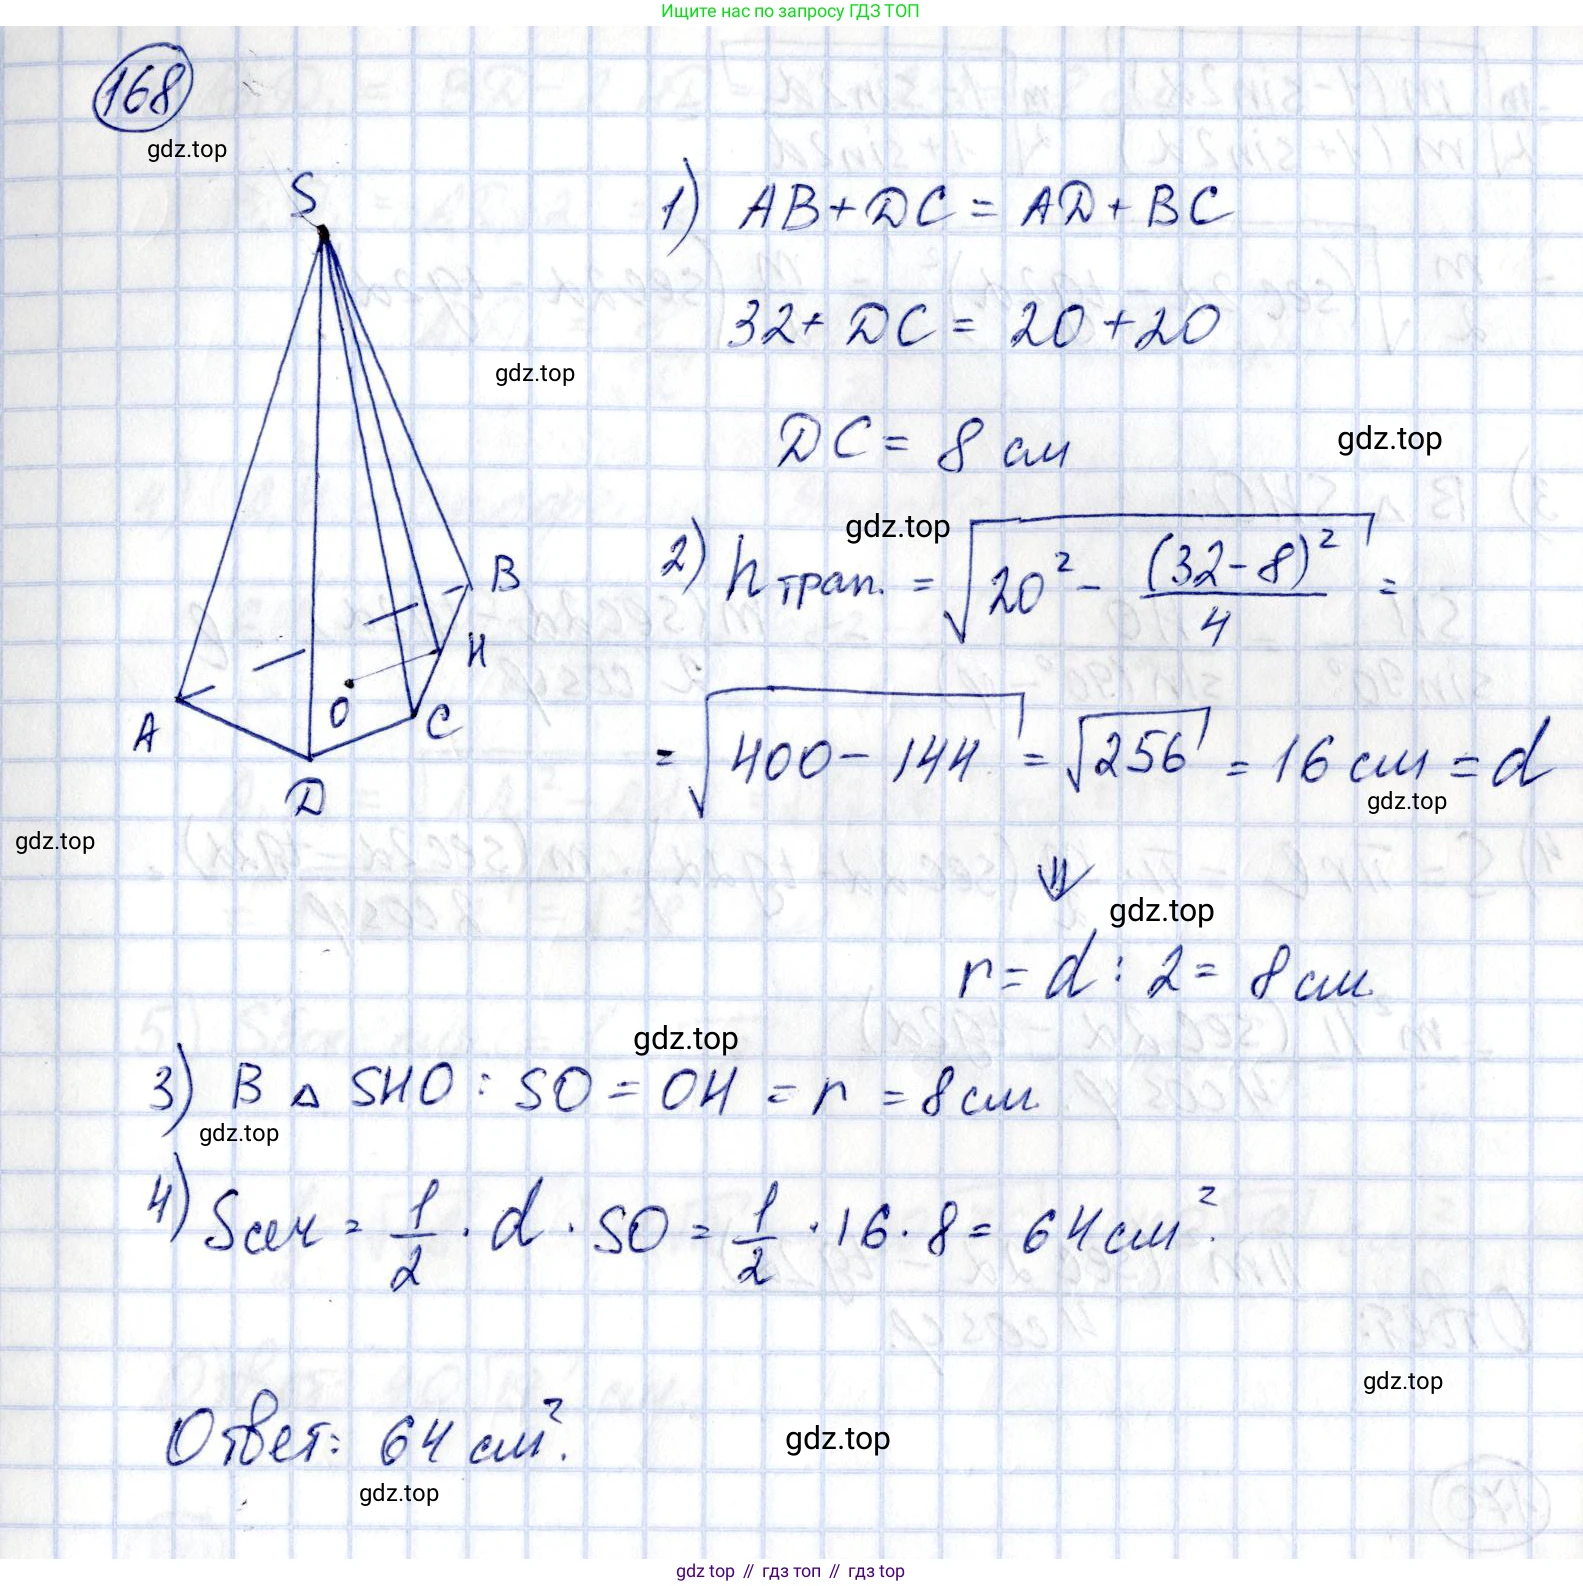 Ищите нас по запросу ГДЗ ТОП
168
gdz.top
S
1) AB + DC = AD + BC
32 + DC = 20 + 20
gdz.top
DC = 8 см
gdz.top
gdz.top
2) hтрап. = √(20² - (32-8)²/4) =
B
H
A
O
C
D
= √(400 - 144) = √256 = 16 см = d
gdz.top
gdz.top
⇓
gdz.top
r = d : 2 = 8 см
gdz.top
3) В △ SHO : SO = OH = r = 8 см
gdz.top
4) Sсеч = 1/2 · d · SO = 1/2 · 16 · 8 = 64 см².
gdz.top
Ответ: 64 см².
gdz.top
gdz.top
gdz.top // гдз топ // гдз top